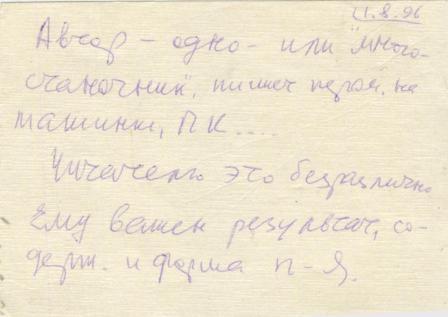 21.8.96
Автор – одно- или "много-
станочник", пишет пером, на
машинке, ПК....
Читателю это безразлично
Ему важен результат, со-
держ. и форма п-я.